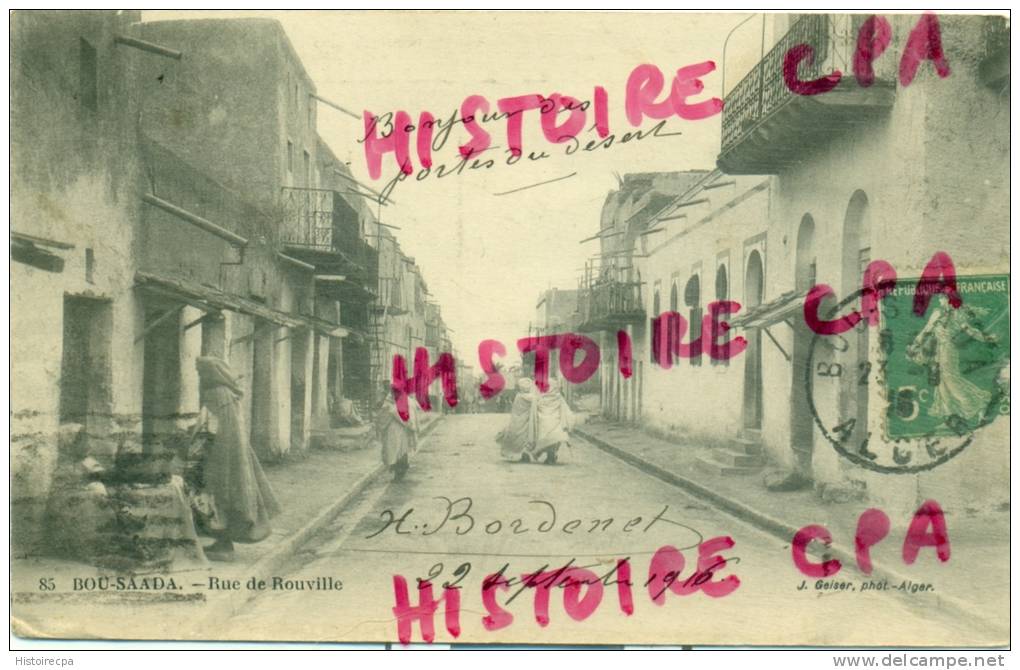 HISTOIRE CPA
Bonjour des
portes du désert
RÉPUBLIQUE FRANÇAISE
5c
BOU-SAADA
23
16
ALGER
HISTOIRE CPA
H. Bordenet
22 septembre 1916.
HISTOIRE CPA
85 BOU-SAADA. – Rue de Rouville
J. Geiser, phot.-Alger.
Histoirecpa
www.delcampe.net